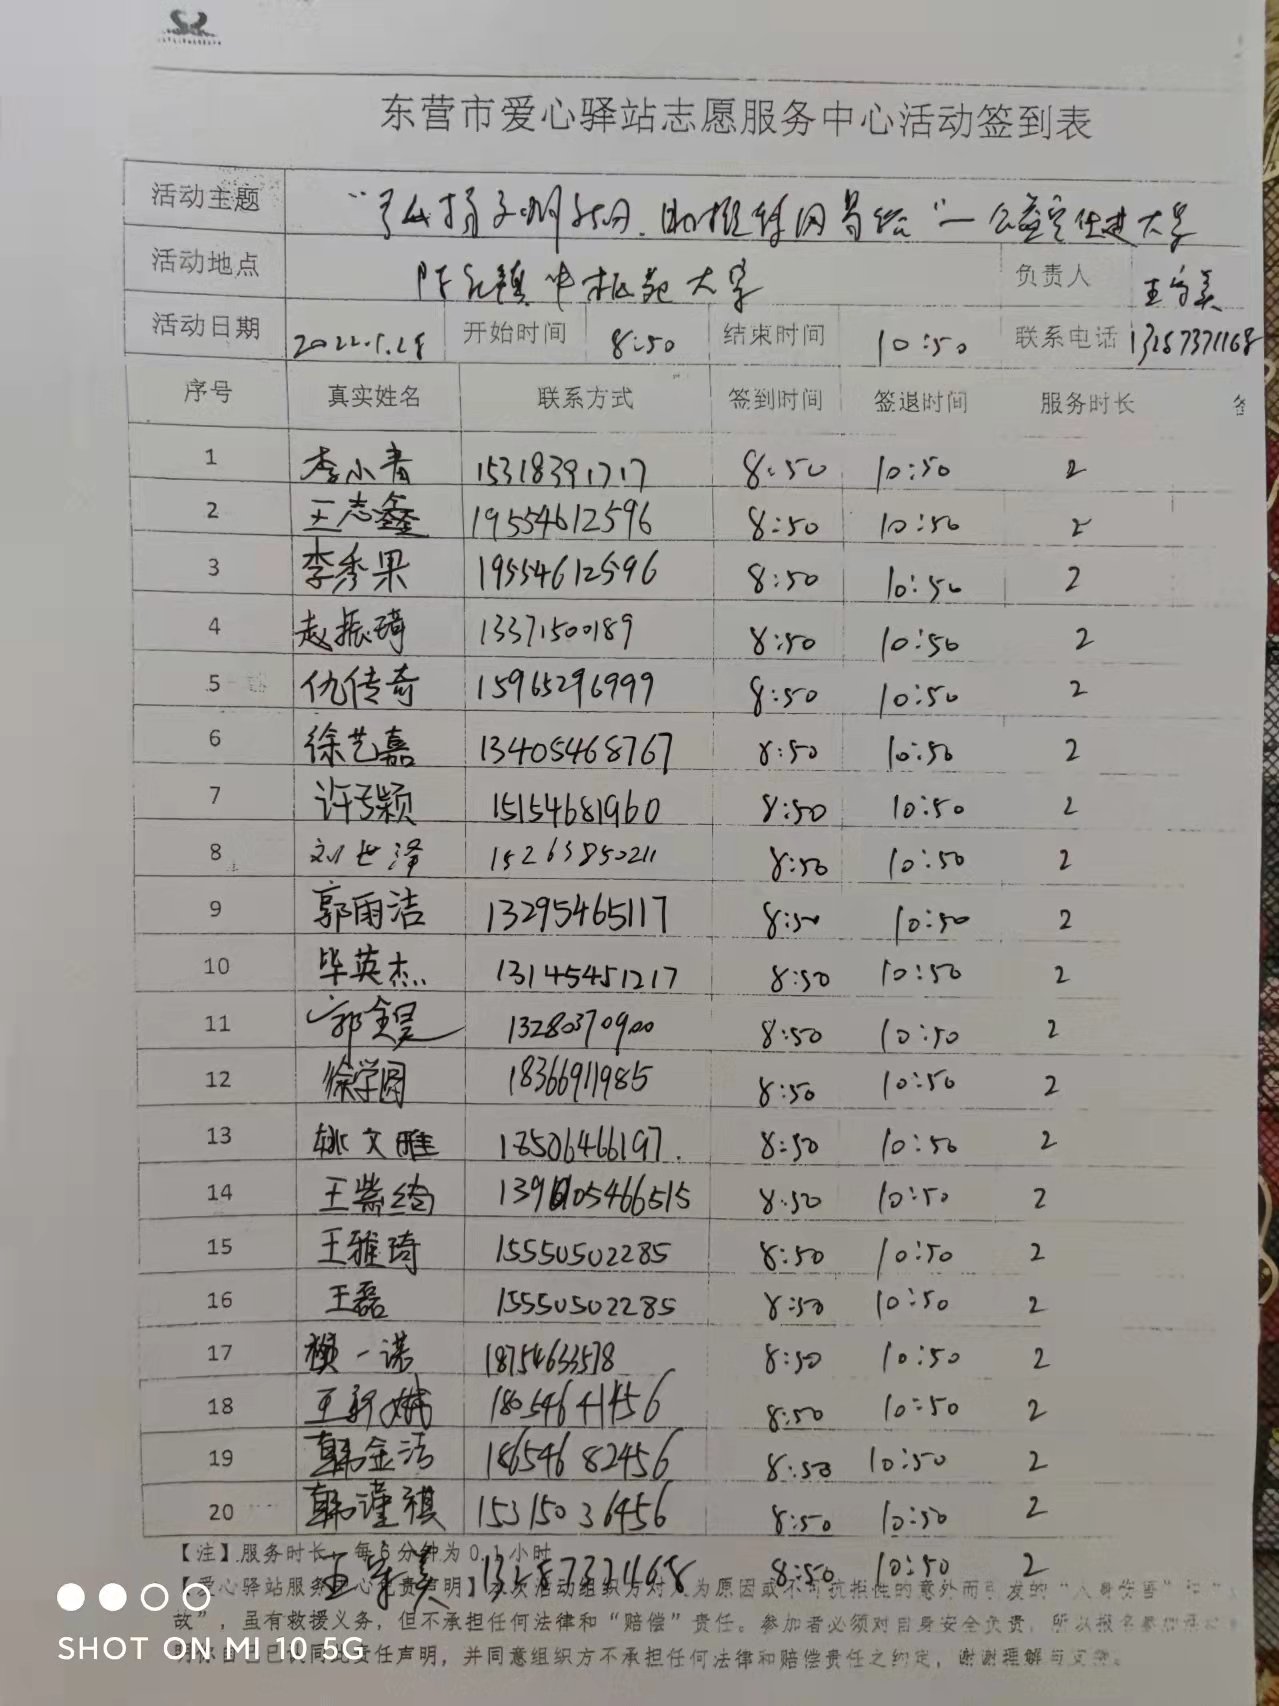 东营市爱心驿站志愿服务中心活动签到表
活动主题 公益宣传进大学
活动地点 大家 负责人 王守美
活动日期 2022.5.28 开始时间 8:50 结束时间 10:50 联系电话
序号 真实姓名 联系方式 签到时间 签退时间 服务时长 签
1 李小青 15318391717 8:50 10:50 2
2 王志鑫 19554612596 8:50 10:50 2
3 李秀果 19554612596 8:50 10:50 2
4 赵振琦 13371500189 8:50 10:50 2
5 仇传奇 15965296999 8:50 10:50 2
6 徐艺嘉 13405468767 8:50 10:50 2
7 许颖 15154681960 8:50 10:50 2
8 刘世泽 15263850211 8:50 10:50 2
9 郭雨洁 13295465117 8:50 10:50 2
10 毕英杰 13145451217 8:50 10:50 2
11 郭金昊 13280370900 8:50 10:50 2
12 徐学圆 18366911985 8:50 10:50 2
13 姚文雅 18506466197. 8:50 10:50 2
14 王紫 8:50 10:50 2
15 王雅琦 15550502285 8:50 10:50 2
16 王磊 15550502285 8:50 10:50 2
17 一诺 18754633578 8:50 10:50 2
18 王 18054641456 8:50 10:50 2
19 韩金洁 18654682456 8:50 10:50 2
20 韩谨祺 15315036456 8:50 10:50 2
【注】服务时长，每6分钟为0.1小时
王守美 8:50 10:50 2
【爱心驿站服务中心免责声明】本次活动组织方对人为原因或不可抗拒性的意外而引发的“人身伤害”和“
故”，虽有救援义务，但不承担任何法律和“赔偿”责任。参加者必须对自身安全负责，所以报名参加活动
明你自己认同此责任声明，并同意组织方不承担任何法律和赔偿责任之约定，谢谢理解与支持。
SHOT ON MI 10 5G